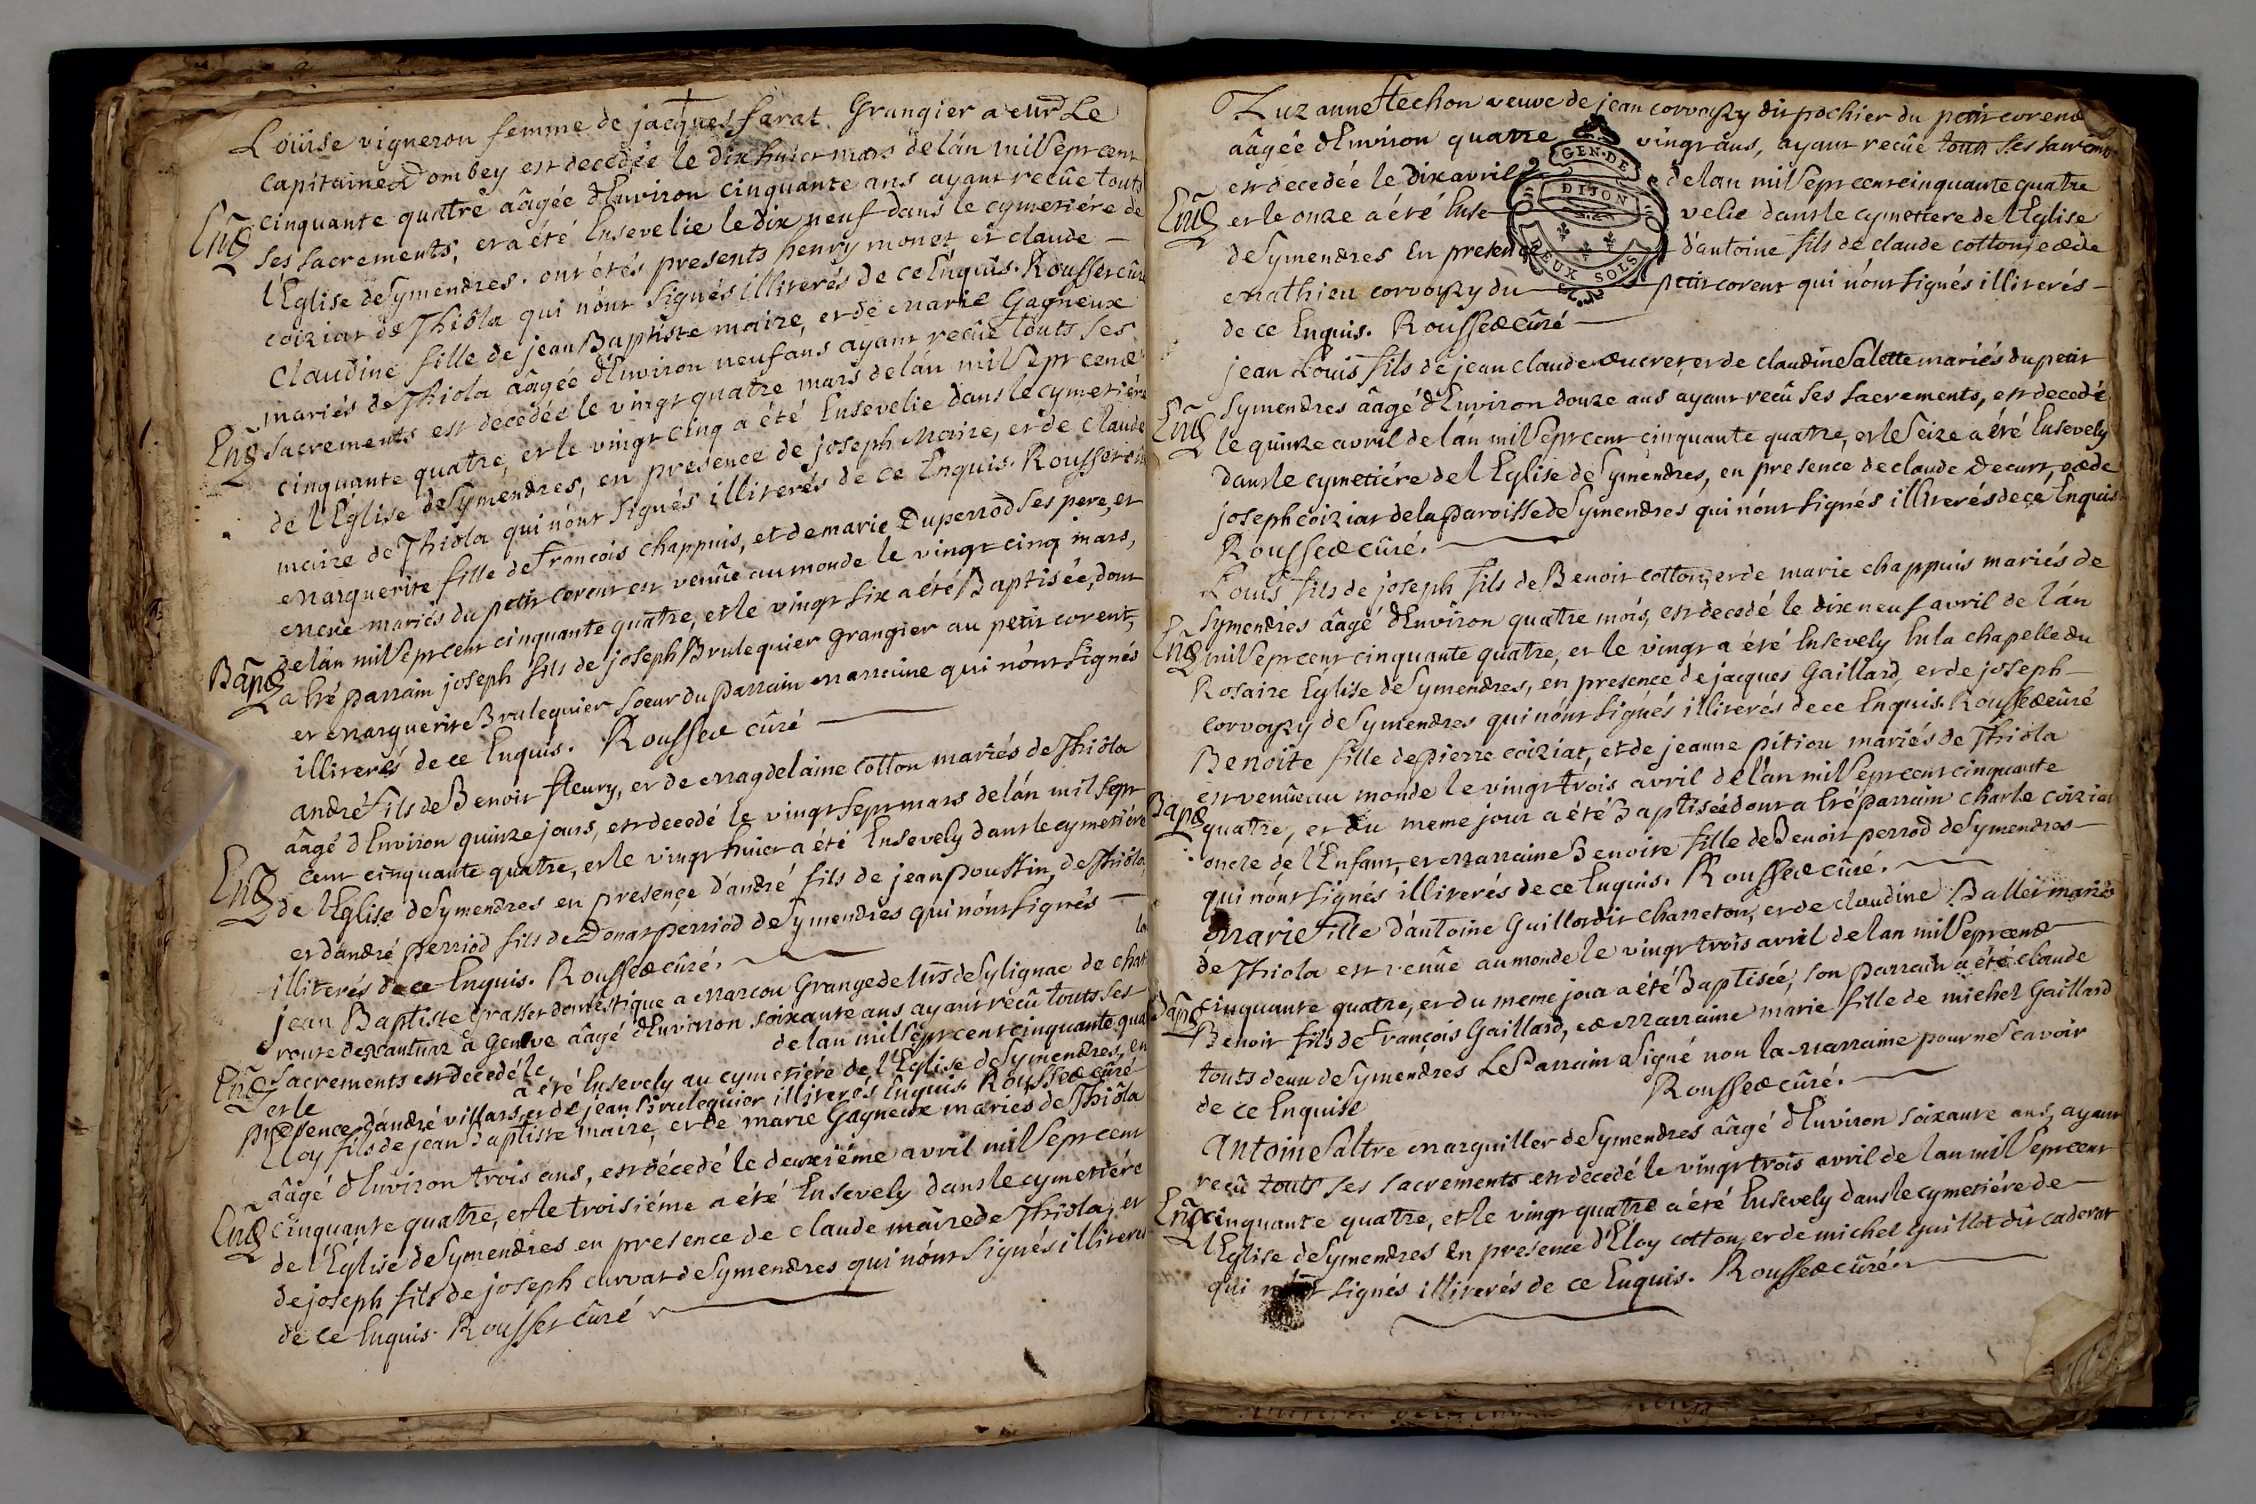 Loüise vigneron femme de jacques farat Grangier a eurd Le
capitaine Dombey est decedée le dix huict mars de lán mil sept cent
cinquante quatre âagée d'Environ cinquante ans ayant recûe touts
Ens
ses sacrements, et a été Ensevelie le dix neuf dans le cymetiére de
l'Eglise de Symendres. ont étés presents henry monet et claude
coiziat de Thiola qui nónt signés illiterés de ce Enquis. Rousset cûré
Claudine fille de jean Baptiste maire, et de marie Gagneux
mariés de Thiola âagée d'Environ neuf ans ayant recûe touts ses
Ens
sacrements est decedée le vingt quatre mars de lán mil sept cent
cinquante quatre, et le vingt cinq a été Ensevelie dans le cymetiére
de l'Eglise de Symendres, en presence de joseph Maire, et de claude
maire de Thiola qui nónt signés illiterés de ce Enquis. Rousset cûré
Marguerite fille de francois chappuis, et de marie Duperrod ses pere, et
mere mariés du petit corent est venûe au monde le vingt cinq mars,
Bap
de lán mil sept cent cinquante quatre, et le vingt six a été Baptisée, dont
a Eté parrain joseph fils de joseph Brulequier grangier au petit corent,
et marguerite Brulequier soeur du parrain marraine qui nónt signés
illiterés de ce Enquis. Rousset cûré
andré fils de Benoit fleury, et de magdelaine cotton mariés de Thiôla
âagé d'Environ quinze jours, est decedé le vingt sept mars de lán mil sept
Ens
cent cinquante quatre, et le vingt huict a été Ensevely dans le cymetiére
de l'Eglise de Symendres en presence d'andré fils de jean poussin, de Thiôla,
et d'andré perriod fils de Donat perriod de Symendres qui nónt signés
illiterés de ce Enquis. Rousset cûré.
jean Baptiste Grasset domestique a marcou Grange de de Sylignac de chat
route de nantua à Genêve âagé d'Environ soixante ans ayant recû touts ses
Ens
sacrements est decedé le de lan mil sept cent cinquante qua
et le a été Ensevely au cymetiére de l'Eglise de Symendres, en
presence d'andré villars, et de jean Brulequier illiterés Enquis Rousset cûré
Eloy fils de jean Baptiste maire, et de marie Gagneux mariés de Thiôla
âagé d'Environ trois ans, est décedé le deuxiéme avril mil sept cent
Ens
cinquante quatre, et le troisiéme a été Ensevely dans le cymetiére
de l'Eglise de Symendres en presence de claude mâire de Thiola, et
de joseph fils de joseph curvat de Symendres qui nónt signés illiterés
de ce Enquis Rousset cûré
Suzanne Techon veuve de jean corvoysy dit pochier du petit corent
âagée d'Environ quatre vingt ans, ayant recûe touts ses sacrem
est decedée le dix avril de lan mil sept cent cinquante quatre
Ens
et le onze a été Ense velie dans le cymetiere de l'Eglise
de Symendres En presence d'antoine fils de claude cotton, et de
mathieu corvoysy du petit corent qui nónt signés illiterés
de ce Enquis. Rousset cûré
GEN. DE
DIJON
DEUX SOLS
jean Loüis fils de jean claude Ducret, et de claudine Salette mariés du petit
Symendres âagé d'Environ douze ans ayant recû ses sacrements, est decedé
Ens
le quinze avril de lán mil sept cent cinquante quatre, et le seize a été Ensevely
dans le cymetiére de l'Eglise de Symendres, en presence de claude Decurt, et de
joseph coiziat de la paroisse de Symendres qui nónt signés illiterés de ce Enquis
Rousset cûré.
Loüis fils de joseph fils de Benoit cotton, et de marie chappuis mariés de
Symendres âagé d'Environ quatre mois, est decedé le dix neuf avril de lán
Ens
mil sept cent cinquante quatre, et le vingt a été Ensevely En la chapelle du
Rosaire Eglise de Symendres, en presence de jacques Gaillard, et de joseph
corvoysy de Symendres qui nónt signés illiterés de ce Enquis. Rousset cûré
Benoite fille de pierre coiziat, et de jeanne pition mariés de Thiola
est venûe au monde le vingt trois avril de lán mil sept cent cinquante
Bap
quatre, et du meme jour a été Baptisée dont a Eté parrain charle coiziat
oncle de l'Enfant, et marraine Benoite fille de Benoit perrod de Symendres
qui nónt signés illiterés de ce Enquis. Rousset cûré.
Marie fille d'antoine Guillot dit charreton, et de claudine Ballet mariés
de Thiola est venûe au monde le vingt trois avril de lan mil sept cent
Bap
cinquante quatre, et du meme jour a été Baptisée, son parrain a été claude
Benoit fils de françois Gaillard, et marraine marie fille de michel Gaillard
touts deux de Symendres Le Parrain a signé non la marraine pour ne scavoir
de ce Enquise Rousset cûré.
Antoine Saltre marguiller de Symendres âagé d'Environ soixante ans, ayant
recû touts ses sacrements est decedé le vingt trois avril de lan mil sept cent
Ens
cinquante quatre, et le vingt quatre a été Ensevely dans le cymetiére de
l'Eglise de Symendres En presence d'Eloy cotton, et de michel Guillot dit cadorat
qui nónt signés illiterés de ce Enquis. Rousset cûré.